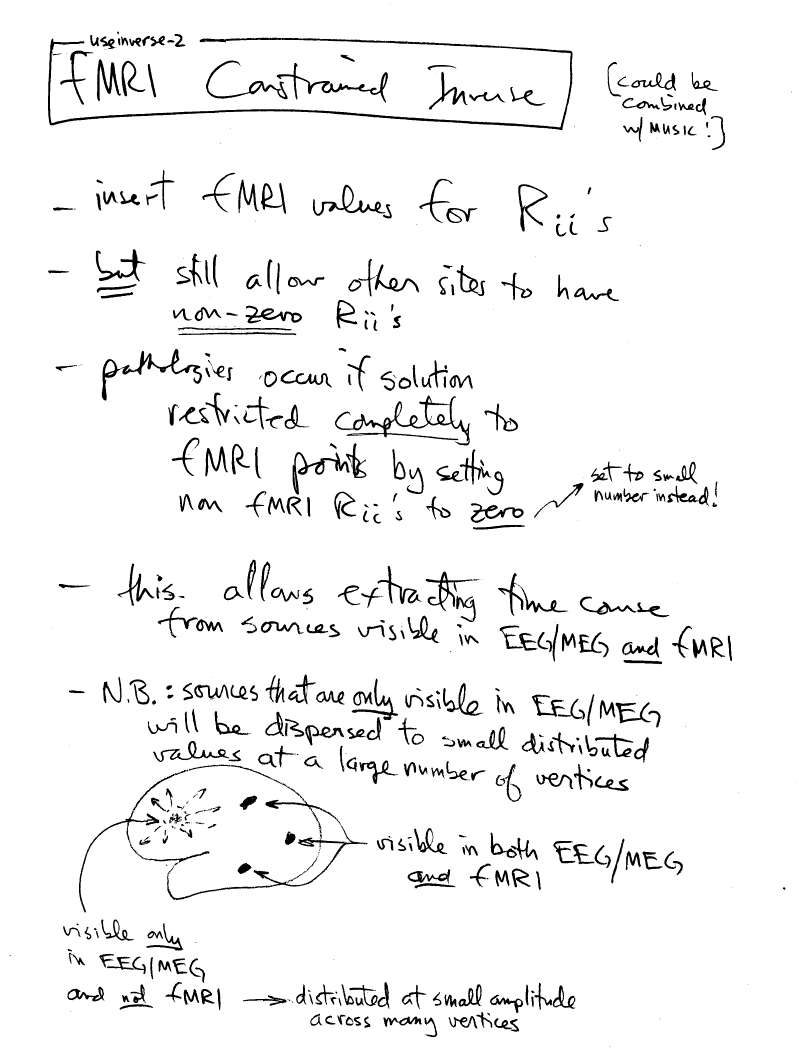 useinverse-2
fMRI Constrained Inverse
[could be
combined
w/ MUSIC!]
- insert fMRI values for Rii's
- but still allow other sites to have
non-zero Rii's
- pathologies occur if solution
restricted completely to
fMRI points by setting
non fMRI Rii's to zero
set to small
number instead!
- this allows extracting time course
from sources visible in EEG/MEG and fMRI
- N.B.: sources that are only visible in EEG/MEG
will be dispersed to small distributed
values at a large number of vertices
visible in both EEG/MEG
and fMRI
visible only
in EEG/MEG
and not fMRI → distributed at small amplitude
across many vertices